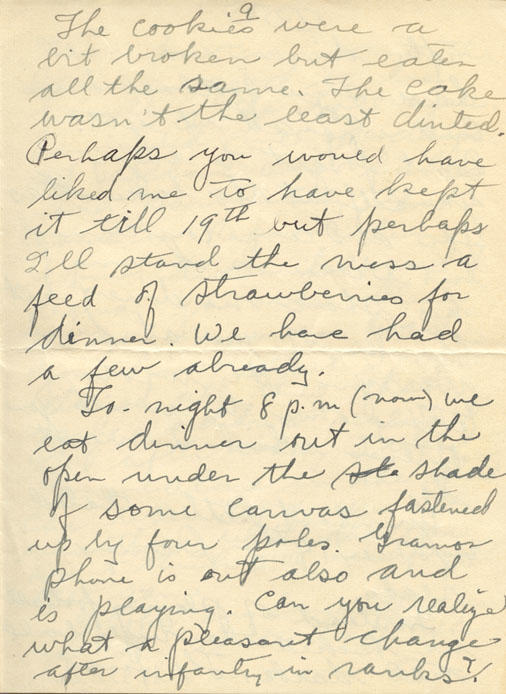 9
The cookies were a
bit broken but eaten
all the same. The cake
wasn't the least dinted.
Perhaps you would have
liked me to have kept
it till 19th but perhaps
I'll stand the mess a
feed of strawberries for
dinner. We have had
a few already.
To-night 8 p.m (now) we
eat dinner out in the
open under the shade
of some canvas fastened
up by four poles. Gramo
phone is out also and
is playing. Can you realize
what a pleasant change
after infantry in ranks?